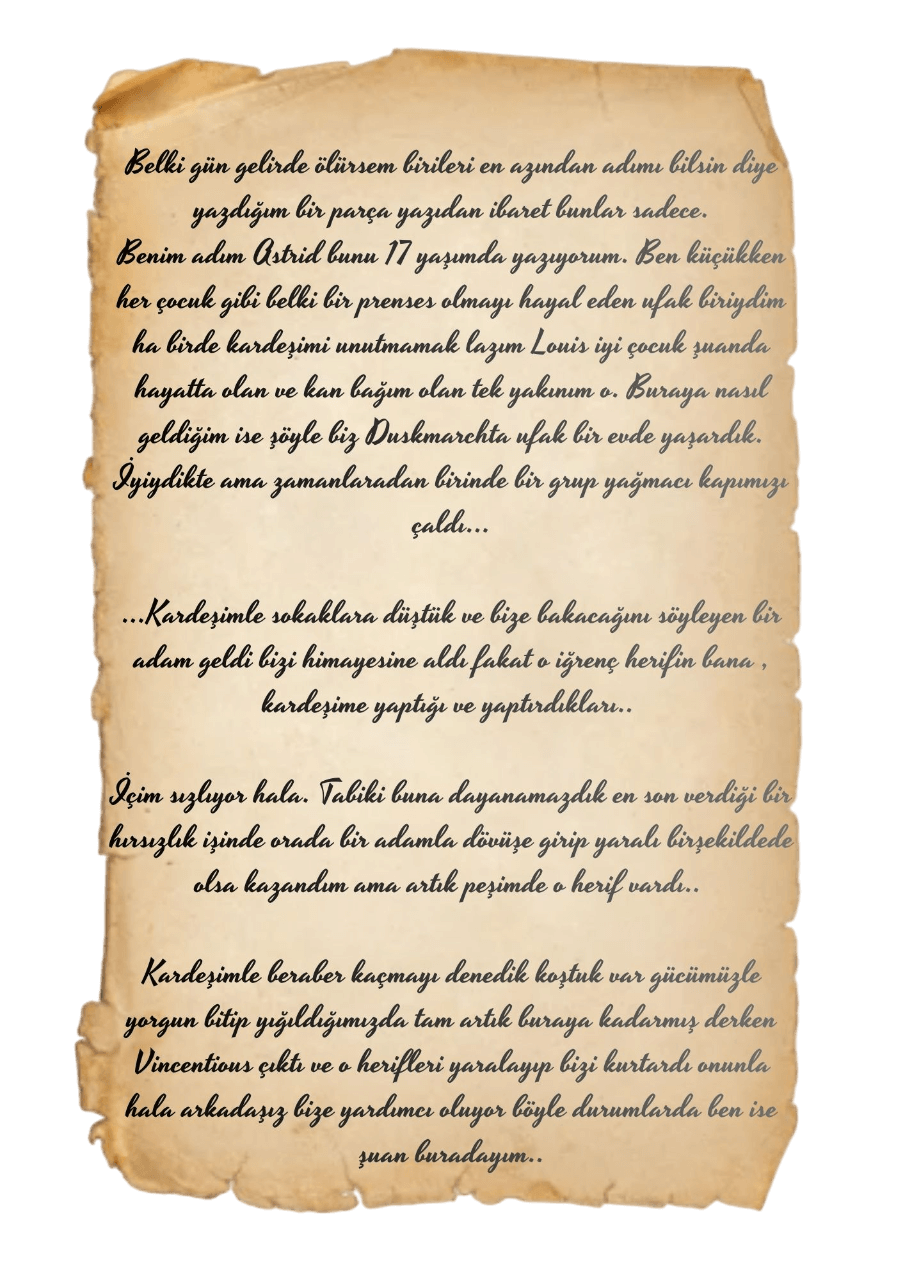 Belki gün gelirde ölürsem birileri en azından adımı bilsin diye
yazdığım bir parça yazıdan ibaret bunlar sadece.
Benim adım Astrid bunu 17 yaşımda yazıyorum. Ben küçükken
her çocuk gibi belki bir prenses olmayı hayal eden ufak biriydim
ha birde kardeşimi unutmamak lazım Louis iyi çocuk şuanda
hayatta olan ve kan bağım olan tek yakınım o. Buraya nasıl
geldiğim ise şöyle biz Duskmarchta ufak bir evde yaşardık.
İyiydikte ama zamanlaradan birinde bir grup yağmacı kapımızı
çaldı...
...Kardeşimle sokaklara düştük ve bize bakacağını söyleyen bir
adam geldi bizi himayesine aldı fakat o iğrenç herifin bana ,
kardeşime yaptığı ve yaptırdıkları..
İçim sızlıyor hala. Tabiki buna dayanamazdık en son verdiği bir
hırsızlık işinde orada bir adamla dövüşe girip yaralı birşekildede
olsa kazandım ama artık peşimde o herif vardı..
Kardeşimle beraber kaçmayı denedik koştuk var gücümüzle
yorgun bitip yığıldığımızda tam artık buraya kadarmış derken
Vincentious çıktı ve o herifleri yaralayıp bizi kurtardı onunla
hala arkadaşız bize yardımcı oluyor böyle durumlarda ben ise
şuan buradayım..